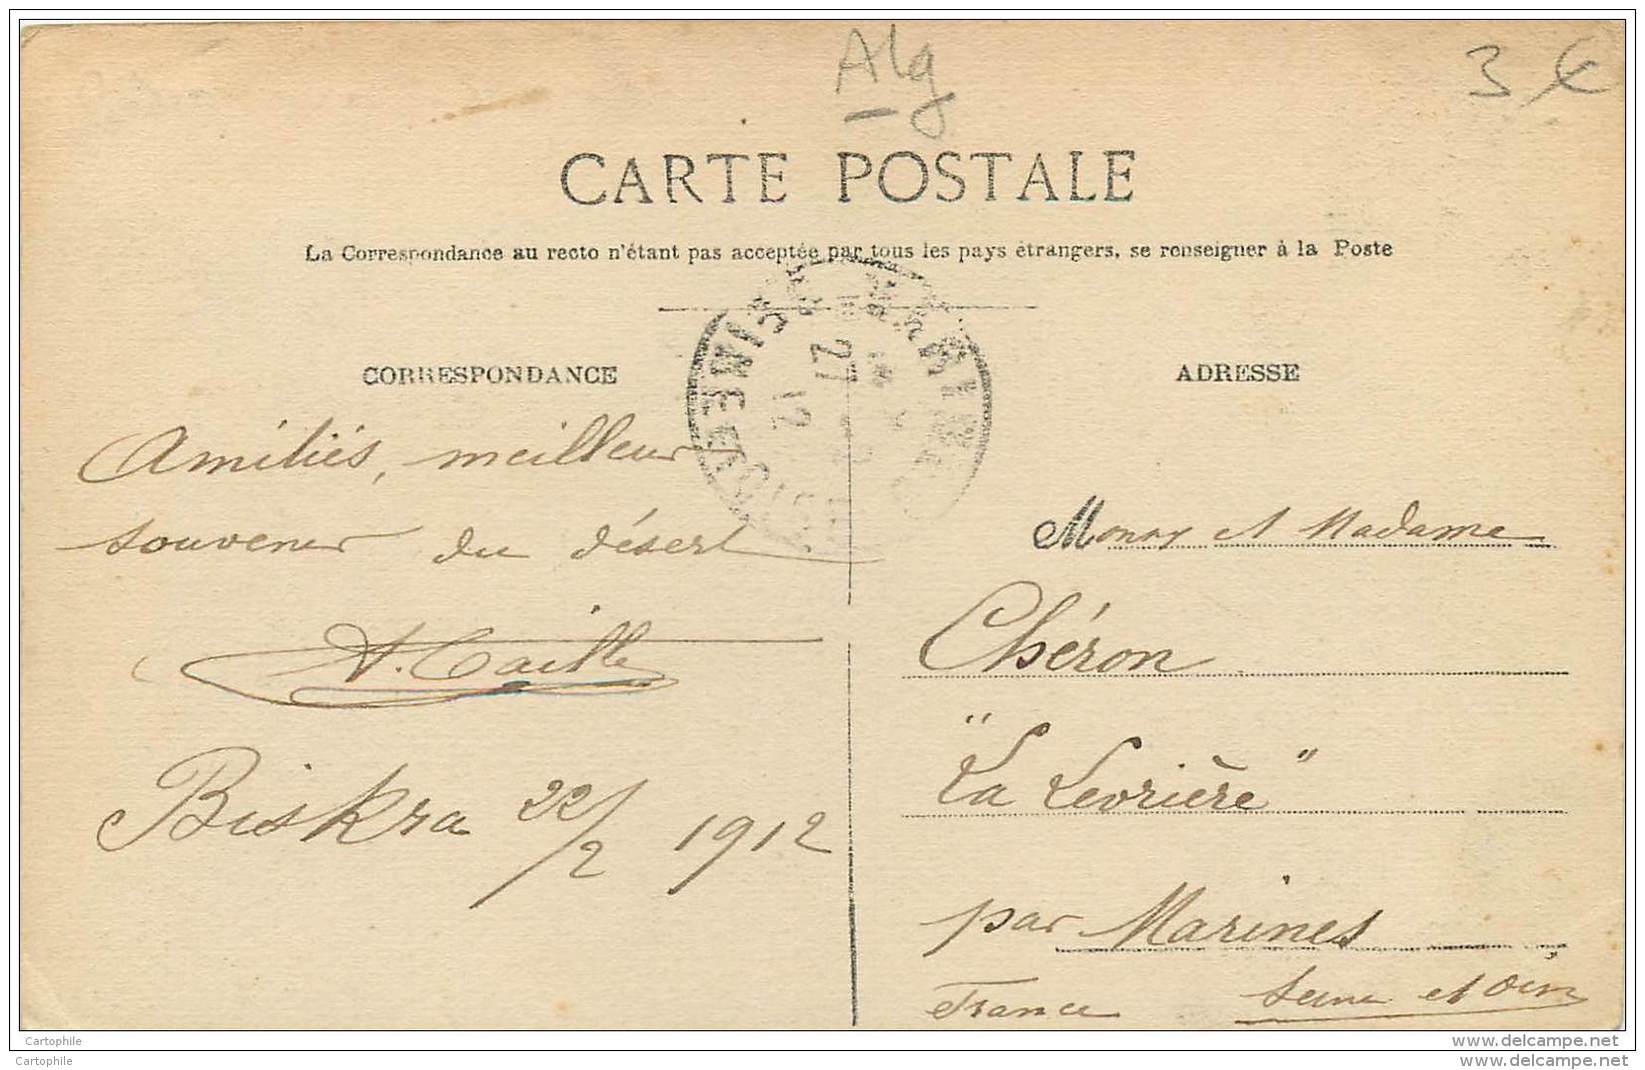 Alg
3 €
CARTE POSTALE
La Correspondance au recto n'étant pas acceptée par tous les pays étrangers, se renseigner à la Poste
CORRESPONDANCE
Amitiés, meilleur
souvenir du désert
A. Caille
Biskra 22/2 1912
ADRESSE
et Madame
Chéron
"La Levrière"
par Marines
France Seine et Oise
27
12
Cartophile
Cartophile
www.delcampe.net
www.delcampe.net